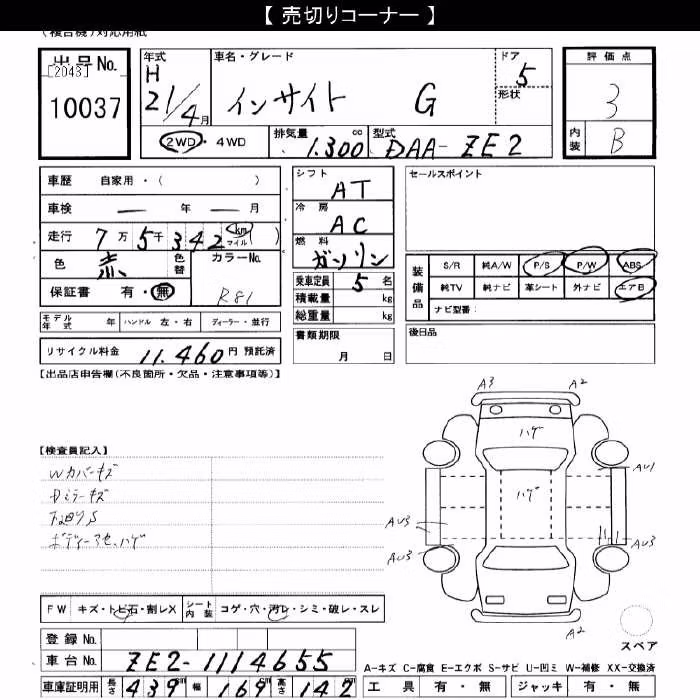 【 売切りコーナー 】
(複合機)対応用紙
出品No.
[2043]
10037
年式
H
21/4月
車名・グレード
インサイト G
ドア
5
形状
評価点
3
内装
B
2WD・4WD
排気量
1.300cc
型式
DAA-ZE2
車歴 自家用・( )
車検 ー 年 ー 月
走行 7万5千342 km マイル ( )
色 赤 色替
カラーNo.
R81
保証書 有・無
モデル年式 年 ハンドル 左・右 ディーラー・並行
リサイクル料金 11.460円 預託済
シフト
AT
冷房
AC
燃料
ガソリン
乗車定員 5名
積載量 kg
総重量 kg
書類期限
月 日
セールスポイント
装備品
S/R 純A/W P/S P/W ABS
純TV 純ナビ 革シート 外ナビ エアB
ナビ型番:
後日品
【出品店申告欄(不良箇所・欠品・注意事項等)】
【検査員記入】
Wカバーキズ
Dミラーキズ
下回りS
ボディー色ハゲ
A3 A2
ハゲ
ハゲ
AU1
AU3
AU3
AU3
A2
スペア
FW キズ・トビ石・割レX シート内装 コゲ・穴・汚レ・シミ・破レ・スレ
登録No.
車台No. ZE2-1114655
車庫証明用 長さ 439cm 幅 169cm 高さ 142
A-キズ C-腐食 E-エクボ S-サビ U-凹ミ W-補修 XX-交換済
工具 有・無 ジャッキ 有・無